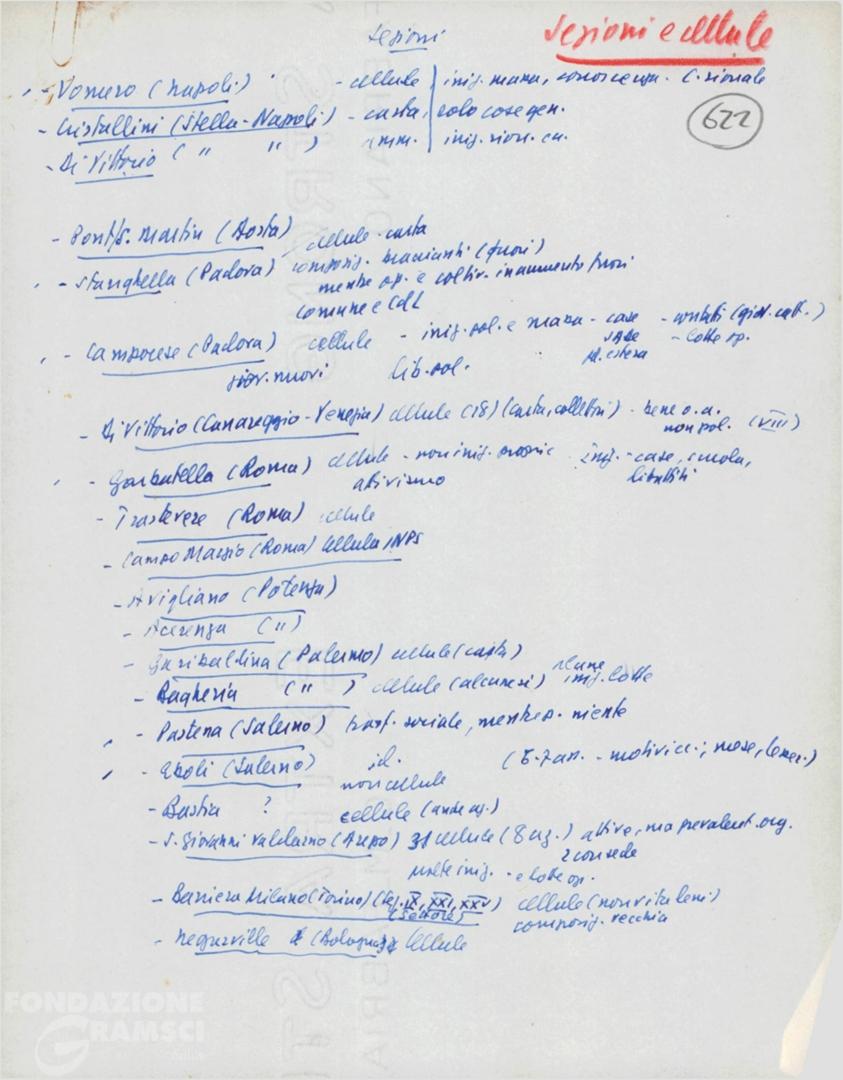 Sezioni
Sezioni e cellule
622
- Vomero (Napoli) - cellule iniz. massa, conoscenza. C. rionale
- Cristallini (Stella-Napoli) - carta, solo cose gen.
- Di Vittorio ( " " ) amm. iniz. rion. cn.
- Pont S. Martin (Aosta) cellule carta
- Stanghella (Padova) composiz. braccianti (fuori)
mentre op. e coltiv. in aumento fuori
comune e CdL
- Camporese (Padova) cellule - iniz. pol. e massa - case - contati (giol. catt.)
giov. nuovi lib. pol. - lotte op.
pl. estera
- Di Vittorio (Cannareggio-Venezia) cellule (18) (carta, collettori) - bene o.a.
non pol. (VIII)
- Garbatella (Roma) cellule - non iniz. propric iniz. - case, scuola,
attivismo libretti
- Trastevere (Roma) cellule
- Campo Marzio (Roma) Cellula INPS
- Avigliano (Potenza)
- Acerenza ( " )
- Garibaldina (Palermo) cellule (carta)
- Bagheria ( " ) cellule (alcune sì) alcune iniz. lotte
- Pastena (Salerno) trasf. sociale, mentre p. niente
- Eboli (Salerno) id.
non cellule
- Bastia ? cellule (anche az.)
- S. Giovanni Valdarno (Arezzo) 31 cellule (8 az.) attive, ma prevalent. org.
2 con sede
molte iniz. - e lotte op.
- Barriera Milano (Torino) (Sez. IX, XXI, XXV) cellule (non vitaleni)
(Settore) composiz. vecchia
- Negarville (Bologna) Cellule
FONDAZIONE
GRAMSCI